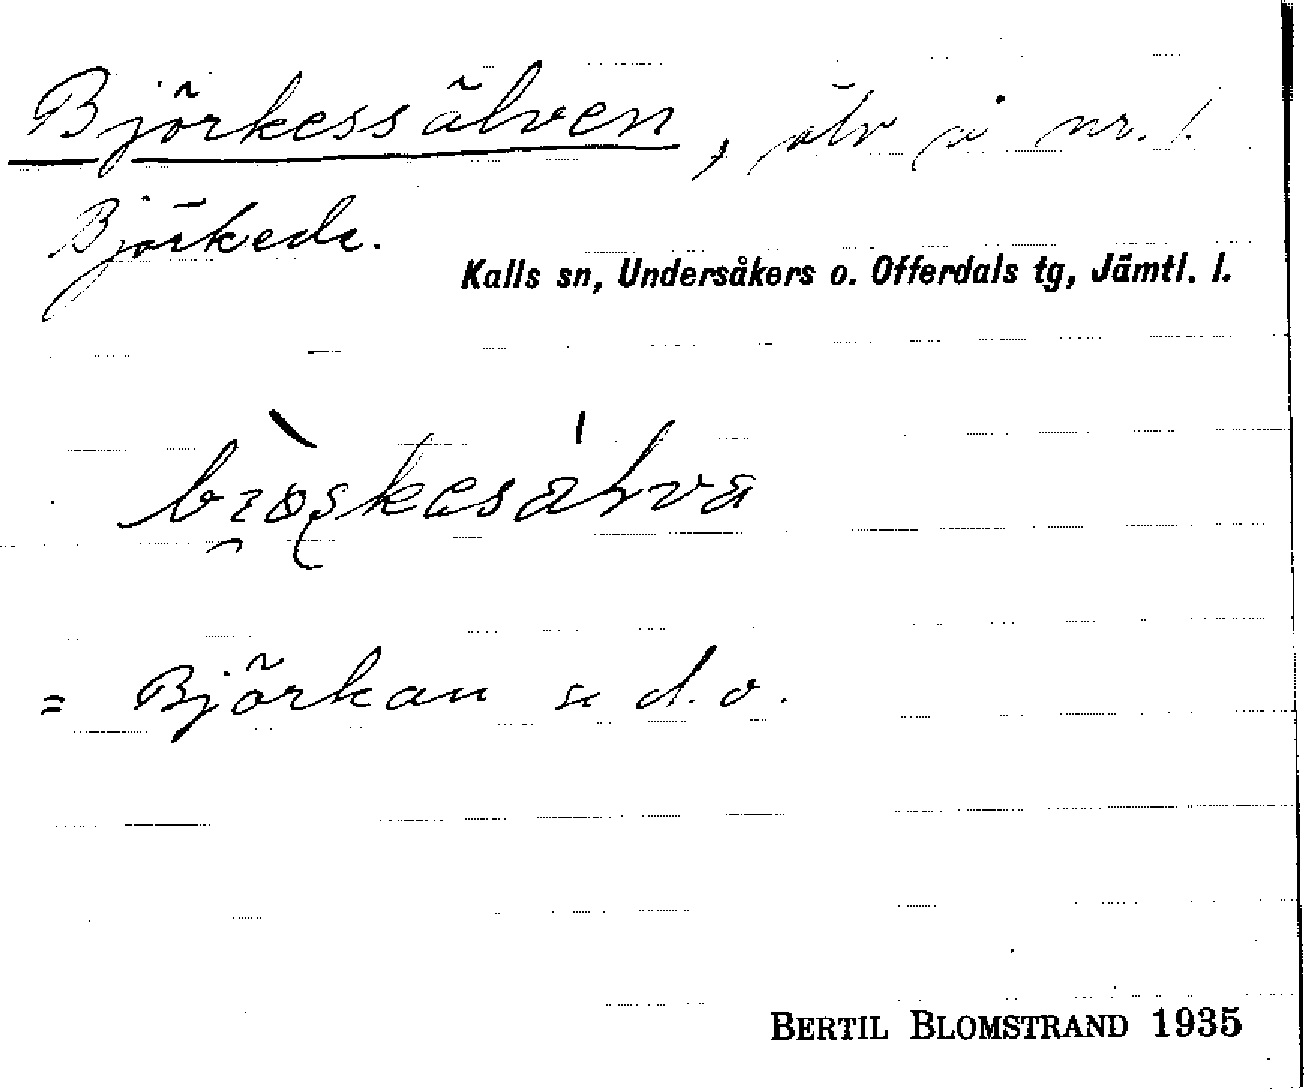 Björkessälven, älv å nr. 1.
Björkede.
Kalls sn, Undersåkers o. Offerdals tg, Jämtl. l.
= Björkan se d. o.
BERTIL BLOMSTRAND 1935